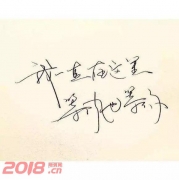 我一直在这里
等风也等你
2018.cn